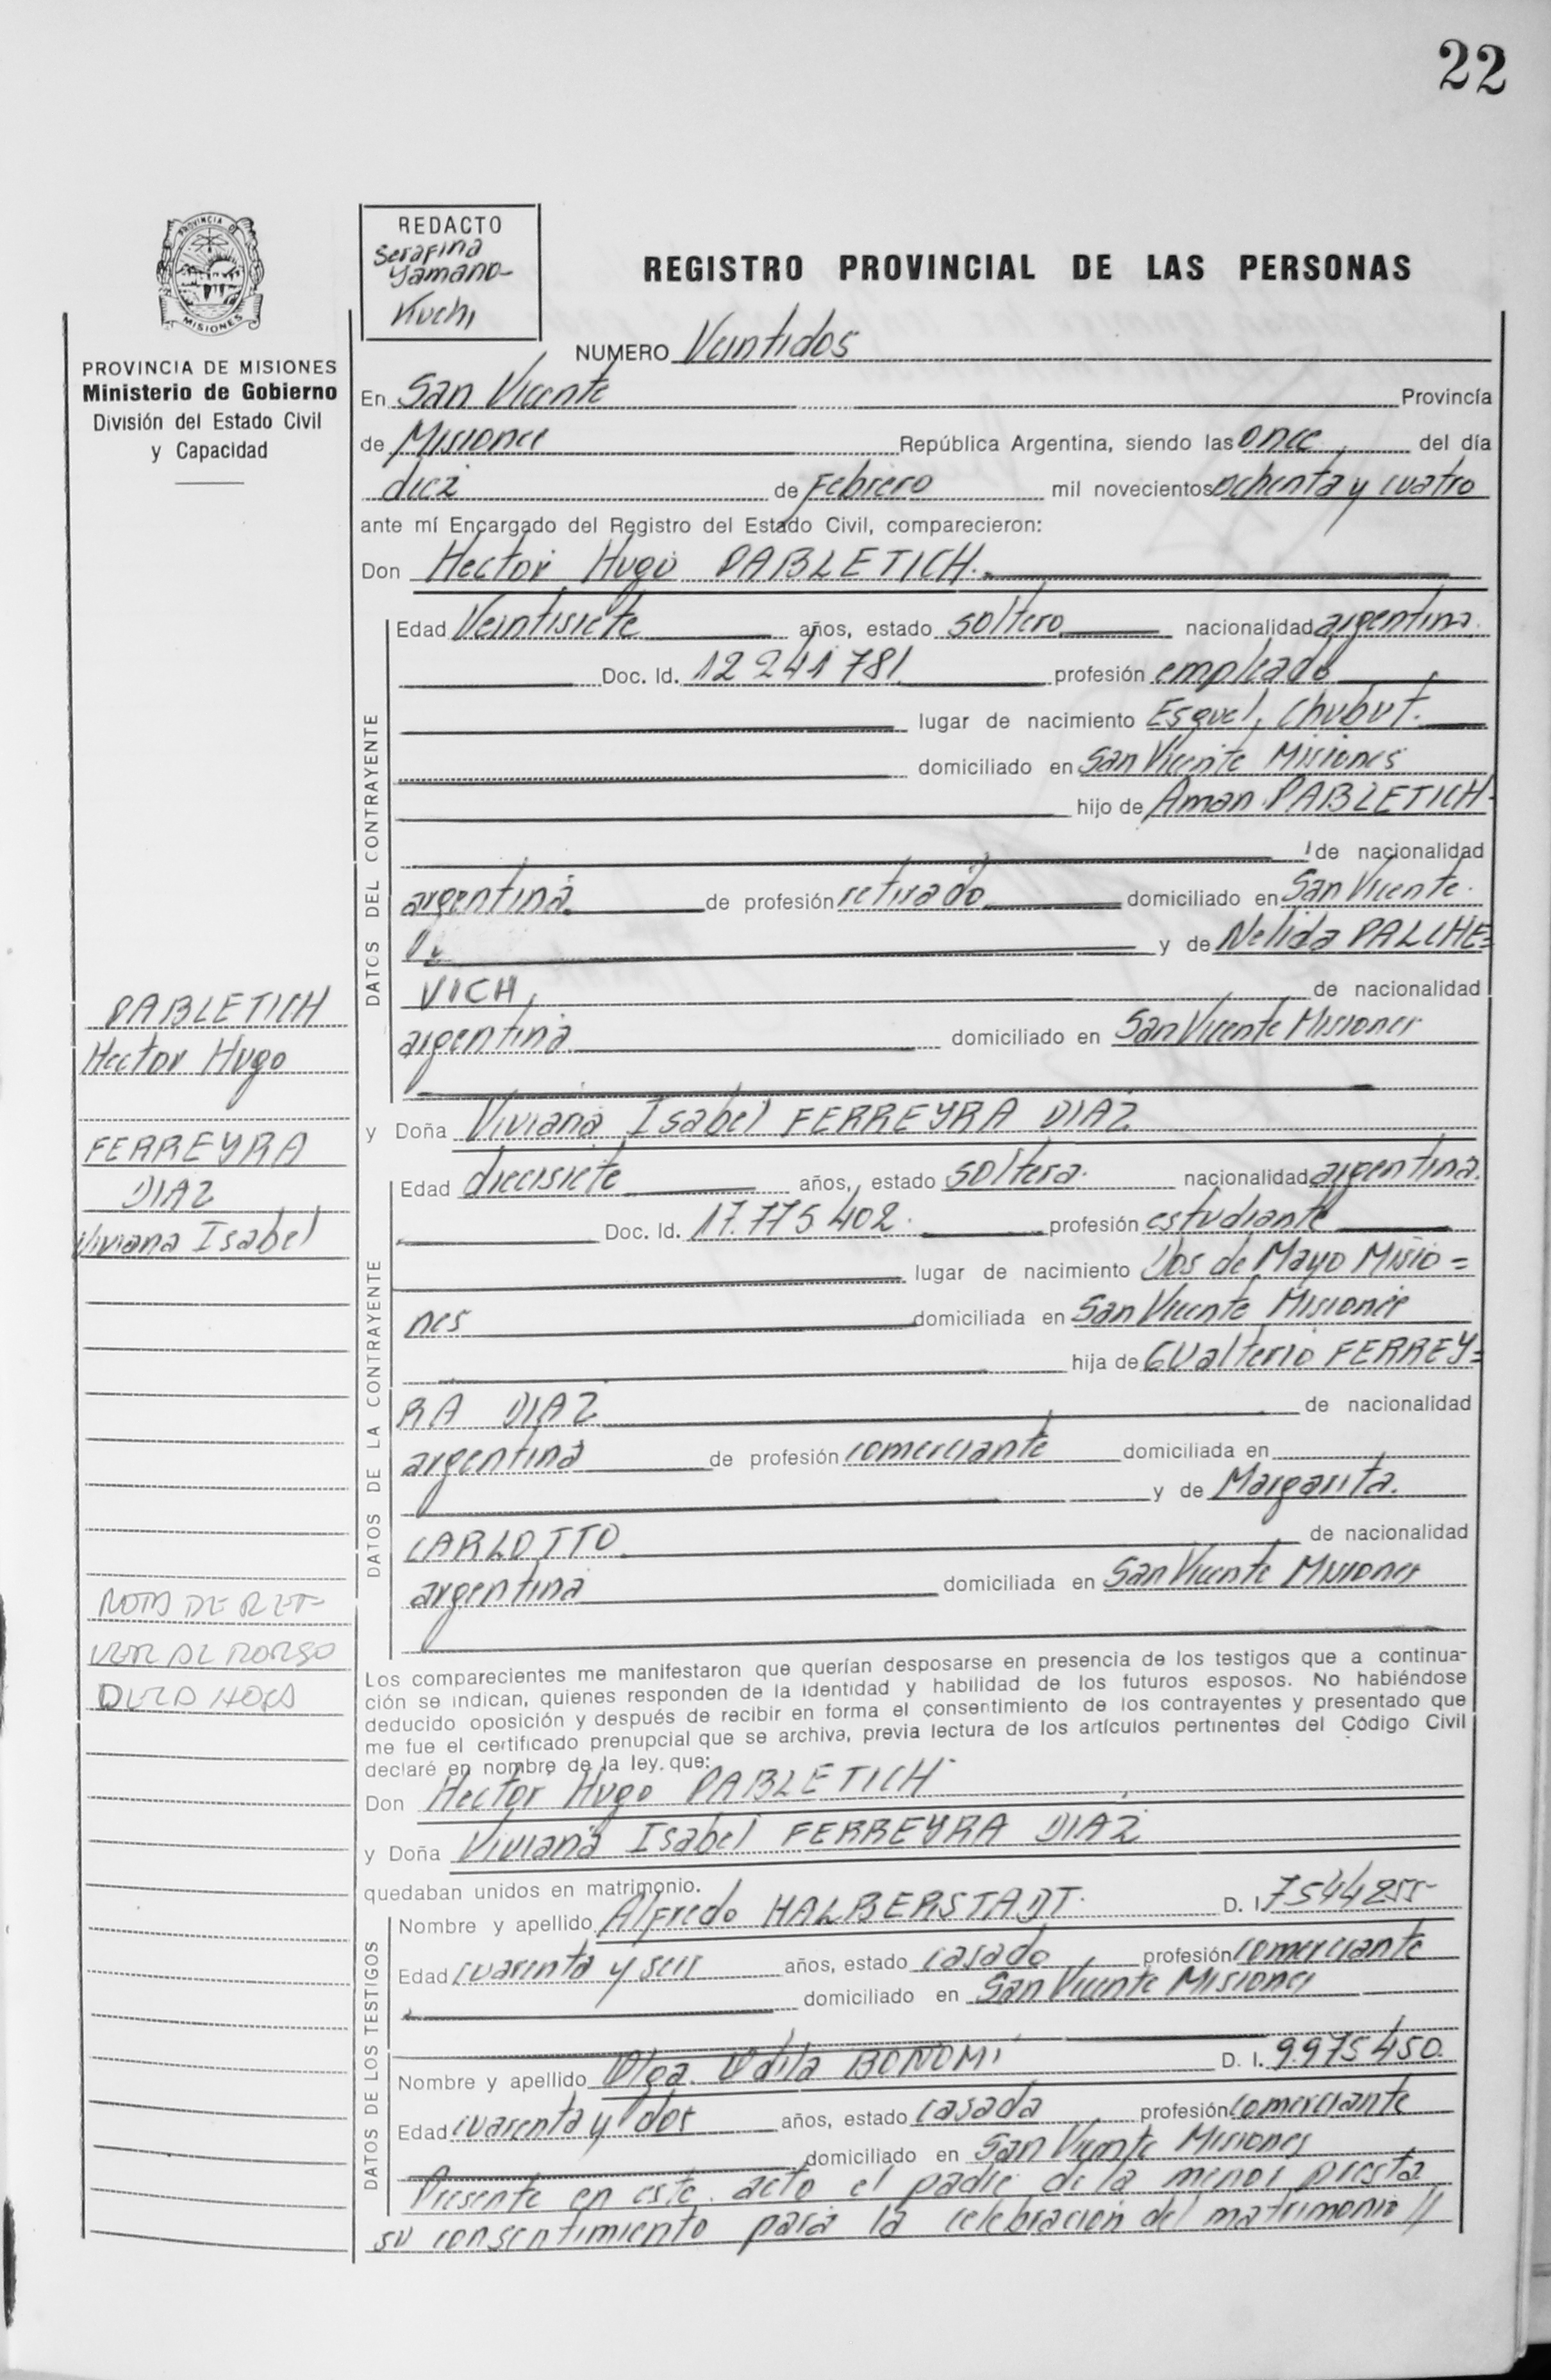 22
PROVINCIA DE
MISIONES
PROVINCIA DE MISIONES
Ministerio de Gobierno
División del Estado Civil
y Capacidad
REDACTO
Serafina
Yamano-
Kuchi
REGISTRO PROVINCIAL DE LAS PERSONAS
NUMERO Veintidos
En San Vicente Provincia
de Misiones República Argentina, siendo las once del día
diez de Febrero mil novecientos ochenta y cuatro
ante mí Encargado del Registro del Estado Civil, comparecieron:
Don Hector Hugo PABLETICH.
DATOS DEL CONTRAYENTE
Edad Veintisiete años, estado soltero nacionalidad argentina.
Doc. Id. 12 241 781 profesión empleado
lugar de nacimiento Esquel, Chubut.
domiciliado en San Vicente Misiones
hijo de Aman PABLETICH
de nacionalidad
argentina de profesión retirado domiciliado en San Vicente.
y de Nelida PALCHE=
VICH, de nacionalidad
argentina domiciliado en San Vicente Misiones
y Doña Viviana Isabel FERREYRA DIAZ
DATOS DE LA CONTRAYENTE
Edad diecisiete años, estado soltera. nacionalidad argentina.
Doc. Id. 17.775 402. profesión estudiante
lugar de nacimiento Dos de Mayo Misio=
nes domiciliada en San Vicente Misiones
hija de GUalterio FERREY=
RA DIAZ de nacionalidad
argentina de profesión comerciante domiciliada en
y de Margarita.
CARLOTTO de nacionalidad
argentina domiciliada en San Vicente Misiones
Los comparecientes me manifestaron que querían desposarse en presencia de los testigos que a continua-
ción se indican, quienes responden de la identidad y habilidad de los futuros esposos. No habiéndose
deducido oposición y después de recibir en forma el consentimiento de los contrayentes y presentado que
me fue el certificado prenupcial que se archiva, previa lectura de los artículos pertinentes del Código Civil
declaré en nombre de la ley. que:
Don Hector Hugo PABLETICH
y Doña Viviana Isabel FERREYRA DIAZ
quedaban unidos en matrimonio.
DATOS DE LOS TESTIGOS
Nombre y apellido Alfredo HALBERSTADT. D. I. 7544255
Edad cuarenta y seis años, estado casado profesión comerciante
domiciliado en San Vicente Misiones
Nombre y apellido Olga Odila BONOMI D. I. 9.975 450.
Edad cuarenta y dos años, estado casada profesión comerciante
domiciliado en San Vicente Misiones
Presente en este acto el padre de la menor presta
su consentimiento para la celebracion del matrimonio //
PABLETICH
Hector Hugo
FERREYRA
DIAZ
Viviana Isabel
NOTA DE REF-
VER AL DORSO
DE LA HOJA